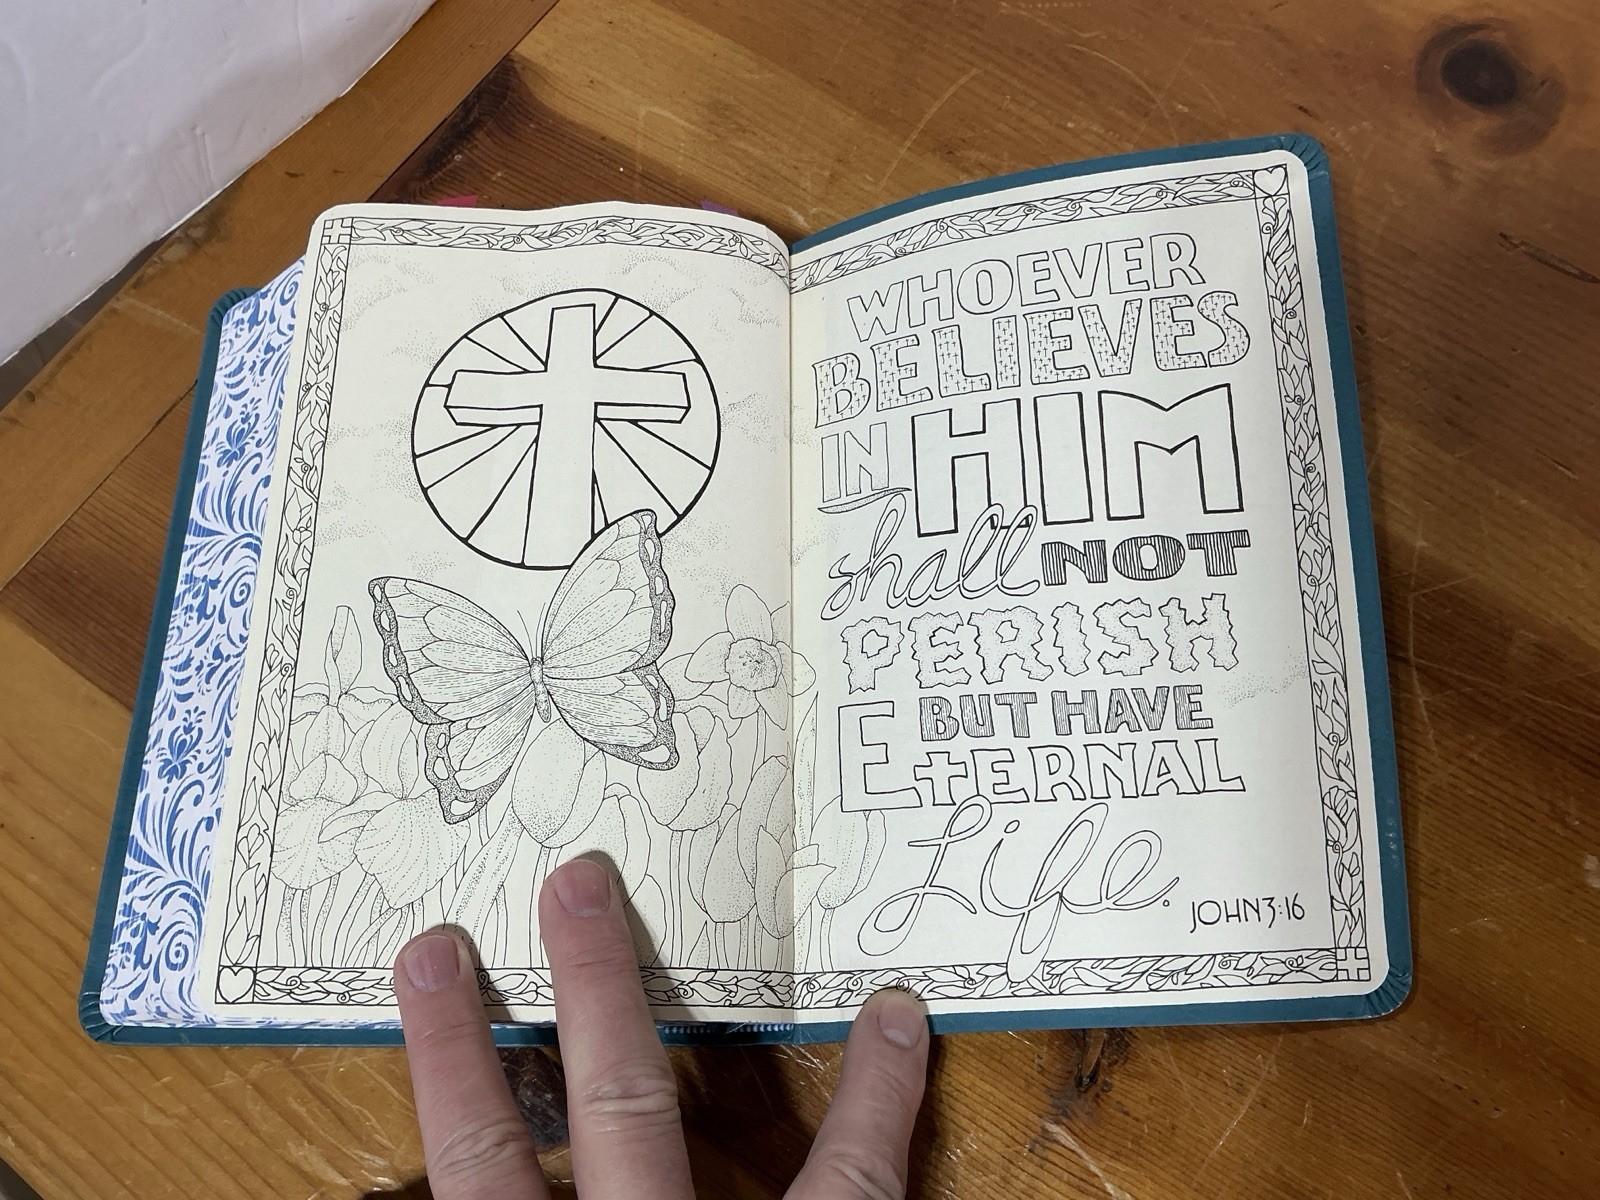 WHOEVER
BELIEVES
IN HIM
shall NOT
PERISH
BUT HAVE
ETERNAL
Life.
JOHN 3:16